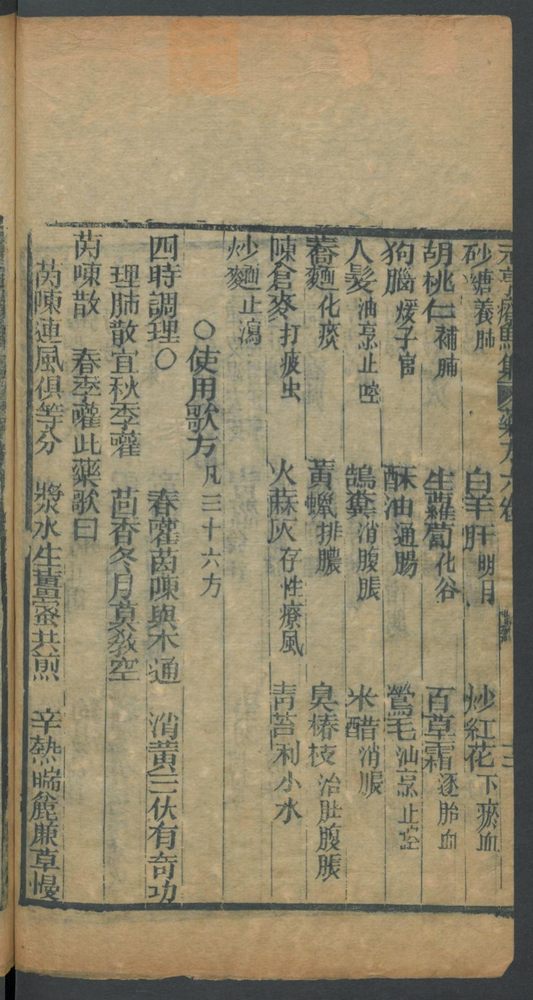 元亨療馬集 藥方六卷 三
砂糖養肺 白羊肝明目 炒紅花下瘀血
胡桃仁補腑 生蘿蔔化谷 百草霜逐胎血
狗腦煖子宮 酥油通腸 鶯毛油京止啌
人髮油京止啌 鵠糞消腹脹 米醋消脹
蕎麵化痰 黃蠟排膿 臭椿枝治肚腹脹
陳倉麥打疲虫 火蔴灰存性療風 靑苔利小水
炒麵止瀉
○使用歌方凡三十六方
四時調理○ 春灌茵陳與木通 消黃三伏有奇功
理肺散宜秋季灌 茴香冬月莫敎空
茵陳散 春季灌此藥歌曰
茵陳連風俱等分 漿水生薑蜜共煎 辛熱喘麄兼草慢